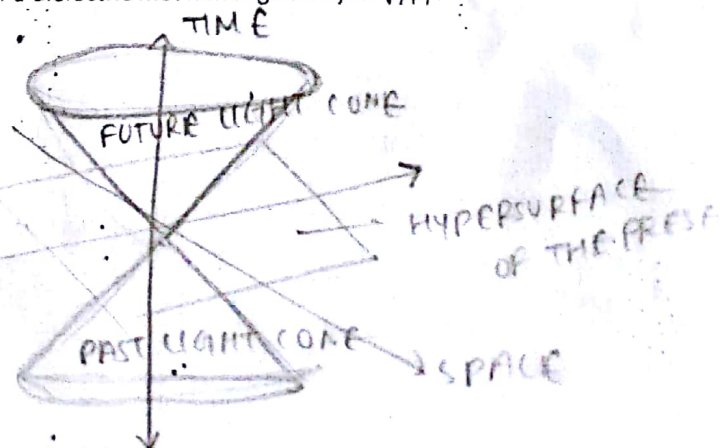 TIME
FUTURE LIGHT CONE
HYPERSURFACE
OF THE PRESE
PAST LIGHT CONE
SPACE